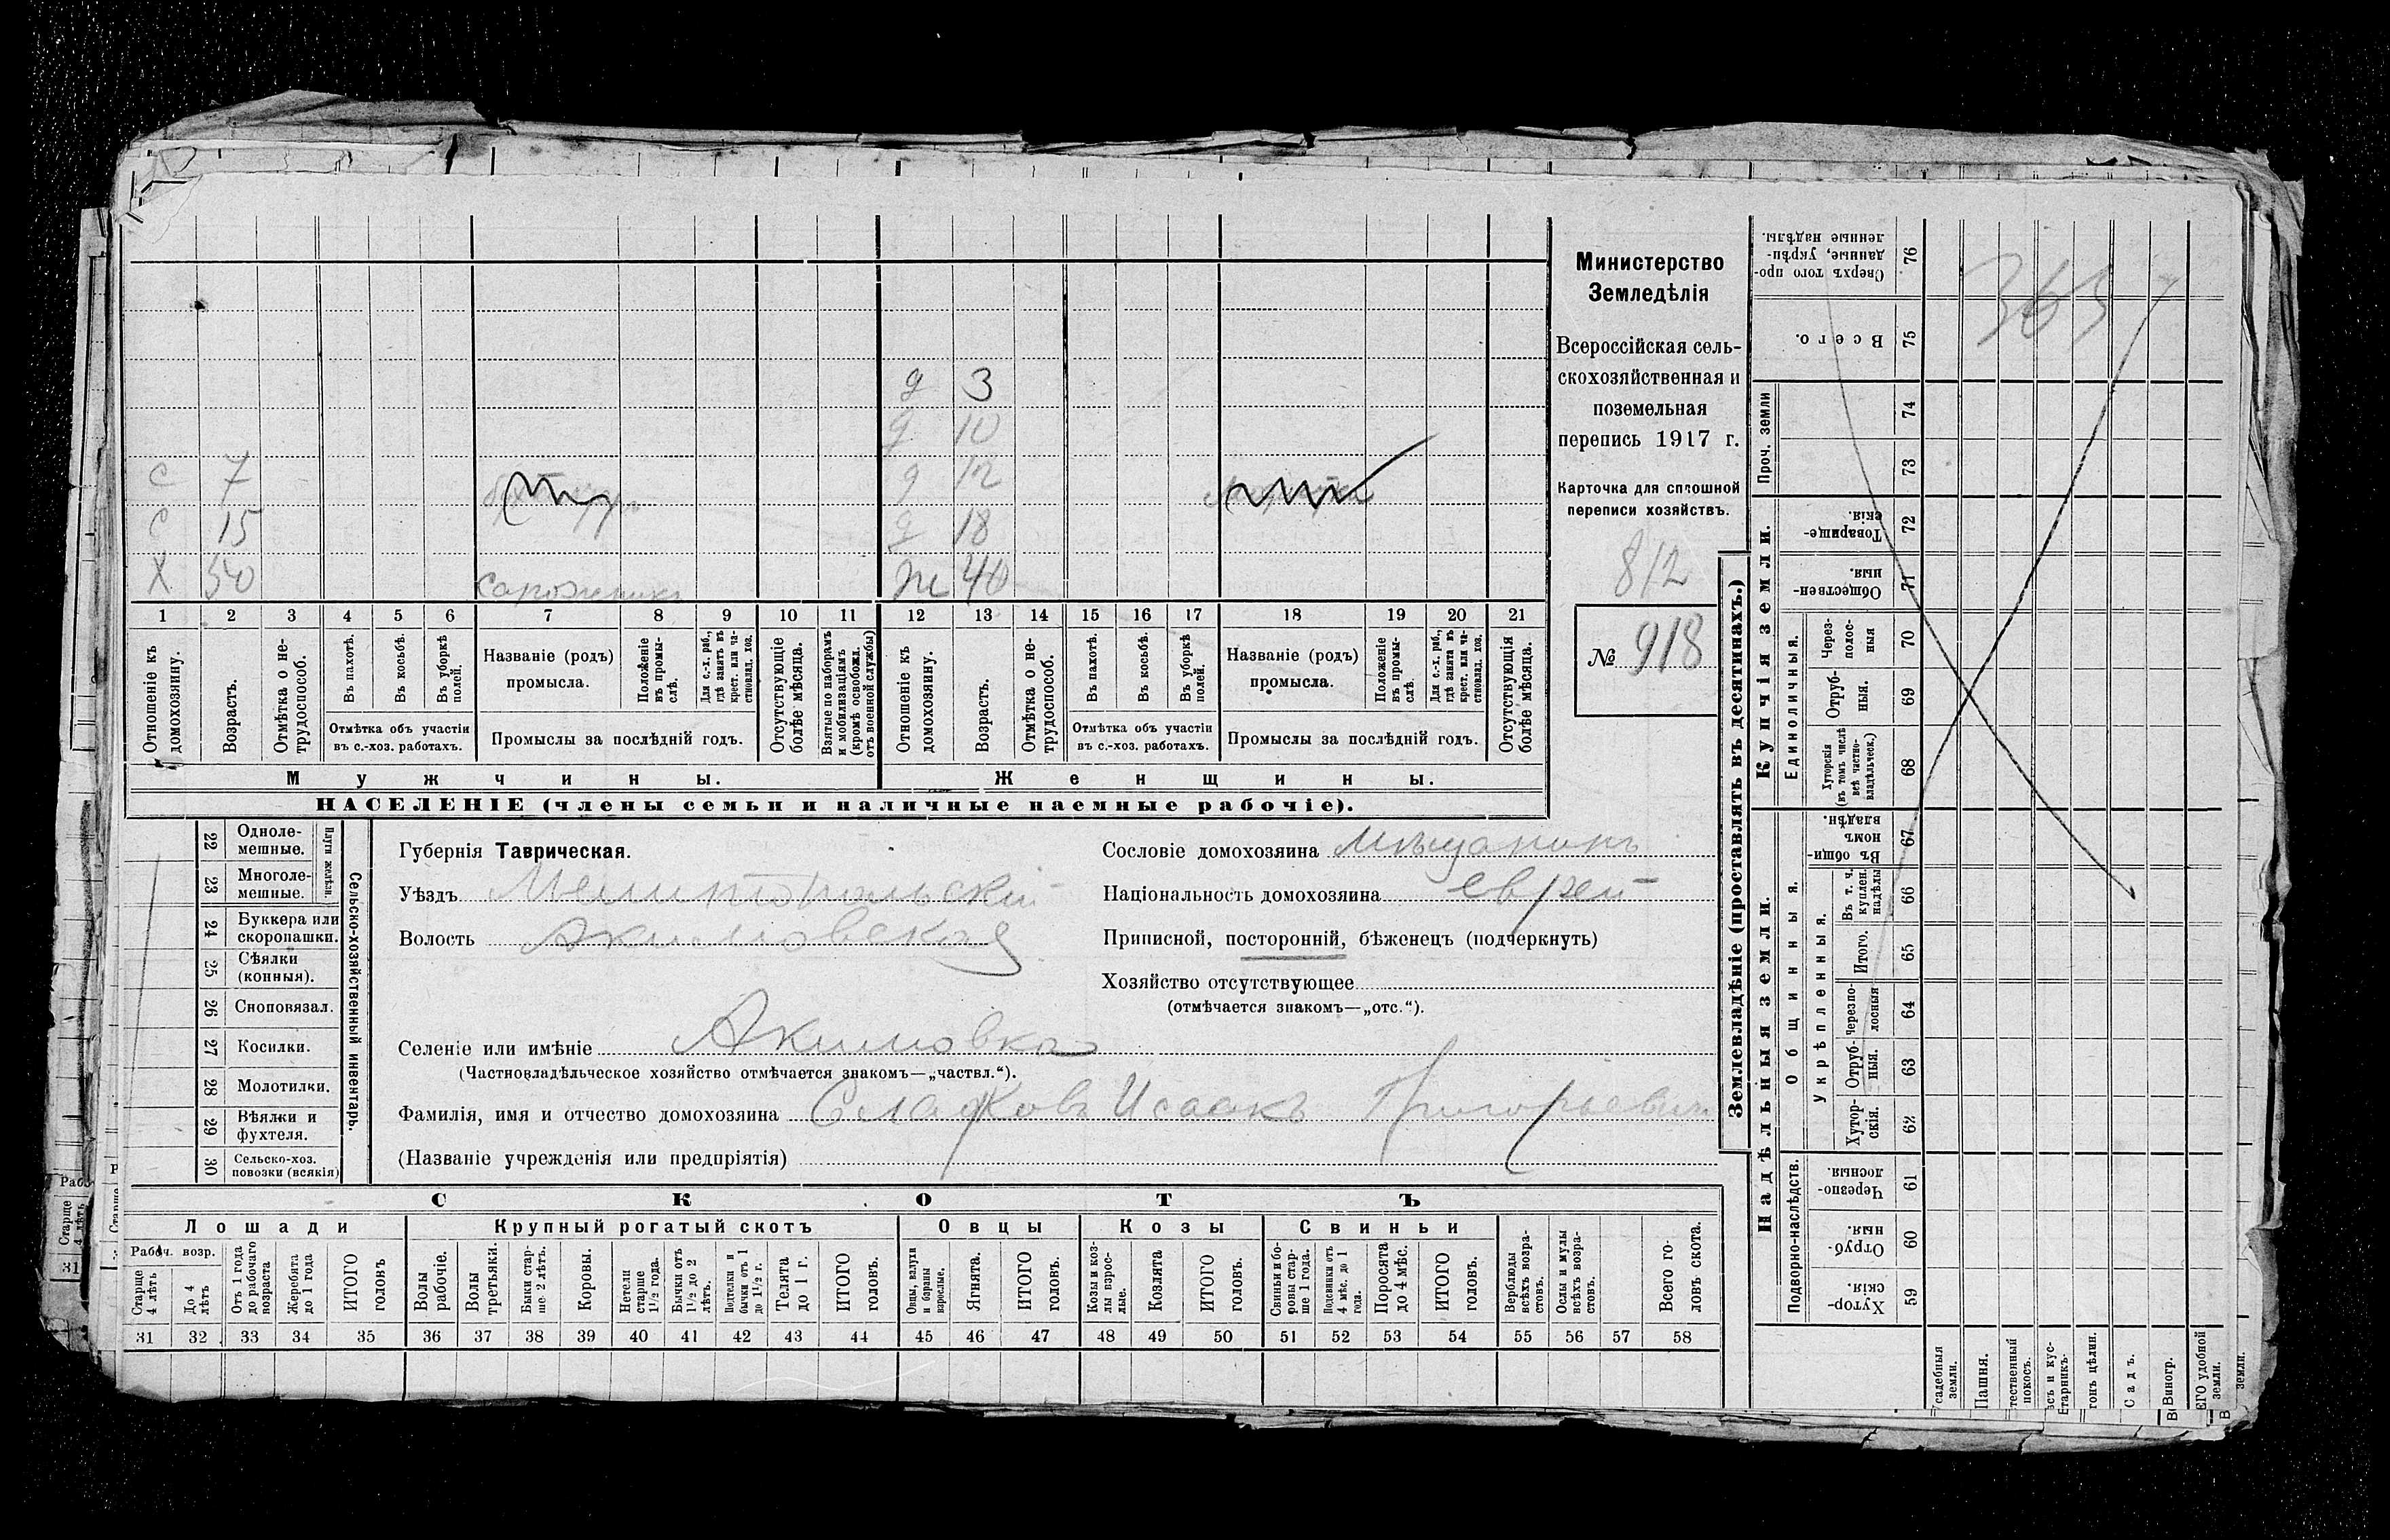 д 3
д 10
с 7 д 12
с 15 д 18
х 50 сапожникъ ж 40
1 2 3 4 5 6 7 8 9 10 11 12 13 14 15 16 17 18 19 20 21
Отношеніе къ домохозяину.
Возрастъ.
Отмѣтка о не-
трудоспособ.
Въ пахотѣ.
Въ косьбѣ.
Въ уборкѣ
полей.
Отмѣтка объ участіи
въ с.-хоз. работахъ.
Названіе (родъ)
промысла.
Положеніе
въ промы-
слѣ.
Для с.-х. раб.,
гдѣ занятъ въ
крест. или ча-
стновлад. хоз.
Промыслы за послѣдній годъ.
Отсутствующіе
болѣе мѣсяца.
Взятые по наборамъ
и мобилизаціямъ
(кромѣ освобожд.
отъ военной службы)
Отношеніе къ
домохозяину.
Возрастъ.
Отмѣтка о не-
трудоспособ.
Въ пахотѣ.
Въ косьбѣ.
Въ уборкѣ
полей.
Отмѣтка объ участіи
въ с.-хоз. работахъ.
Названіе (родъ)
промысла.
Положеніе
въ промы-
слѣ.
Для с.-х. раб.,
гдѣ занята въ
крест. или ча-
стновлад. хоз.
Промыслы за послѣдній годъ.
Отсутствующія
болѣе мѣсяца.
Мужчины. Женщины.
НАСЕЛЕНІЕ (члены семьи и наличные наемные рабочіе).
Министерство
Земледѣлія
Всероссійская сель-
скохозяйственная и
поземельная
перепись 1917 г.
Карточка для сплошной
переписи хозяйствъ.
812
№ 918
22 Одноле-
мешные.
23 Многоле-
мешные.
Плуги желѣзн.
24 Буккера или
скоропашки.
25 Сѣялки
(конныя).
26 Сноповязал.
27 Косилки.
28 Молотилки.
29 Вѣялки и
фухтеля.
30 Сельско-хоз.
повозки (всякія)
Сельско-хозяйственный инвентарь.
Губернія Таврическая.
Уѣздъ Мелитопольскій
Волость Акимовская
Сословіе домохозяина Мѣщанинъ
Національность домохозяина еврей
Приписной, посторонній, бѣженецъ (подчеркнуть)
Хозяйство отсутствующее
(отмѣчается знакомъ—„отс.“).
Селеніе или имѣніе Акимовка
(Частновладѣльческое хозяйство отмѣчается знакомъ—„частвл.“).
Фамилія, имя и отчество домохозяина Сладковъ Исаакъ Григорьевич
(Названіе учрежденія или предпріятія)
СКОТЪ
Лошади Крупный рогатый скотъ Овцы Козы Свиньи
Рабоч. возр.
Старше
4 лѣтъ
До 4
лѣтъ
Отъ 1 года
до рабочаго
возраста
Жеребята
до 1 года
ИТОГО
головъ
Волы
рабочіе.
Волы
третьяки.
Быки стар-
ше 2 лѣтъ.
Коровы.
Нетели
старше
1½ года.
Бычки отъ
1½ до 2
лѣтъ.
Подтелки и
бычки отъ 1
до 1½ г.
Телята
до 1 г.
ИТОГО
головъ.
Овцы, валухи
и бараны
взрослые.
Ягнята.
ИТОГО
головъ.
Козы и коз-
лы взрос-
лые.
Козлята
ИТОГО
головъ.
Свиньи и бо-
ровы стар-
ше 1 года.
Подсвинки отъ
4 мѣс. до 1
года.
Поросята
до 4 мѣс.
ИТОГО
головъ.
Верблюды
всѣхъ возра-
стовъ.
Ослы и мулы
всѣхъ возра-
стовъ.
Всего го-
ловъ скота.
31 32 33 34 35 36 37 38 39 40 41 42 43 44 45 46 47 48 49 50 51 52 53 54 55 56 57 58
Землевладѣніе (проставлять въ десятинахъ.)
Надѣльныя земли. Купчія земли. Проч. земли
Подворно-наслѣдств. Общинныя. Единоличныя.
Укрѣпленныя.
Хутор-
скія 59
Отруб-
ныя. 60
Черезпо-
лосныя. 61
Хутор-
скія. 62
Отруб-
ныя. 63
Черезпо-
лосныя 64
Итого. 65
Въ т. ч.
куплен.
надѣлы 66
Въ общин-
номъ
владѣн. 67
Хуторскія
(въ томъ числѣ
всѣ частно-
владѣльческ.) 68
Отруб-
ныя. 69
Через-
полос-
ныя 70
Обществен-
ныя. 71
Товарище-
скія. 72
73
74
Всего. 75
Сверхъ того про-
данные, укрѣп-
ленные надѣлы. 76
365
садебныя
земли.
Пашня.
тественный
покосъ.
съ и кус-
тарникъ.
гонъ цѣлин.
Садъ.
Виногр.
ЕГО удобной
земли.
земли.
Старше
4 лѣтъ
31